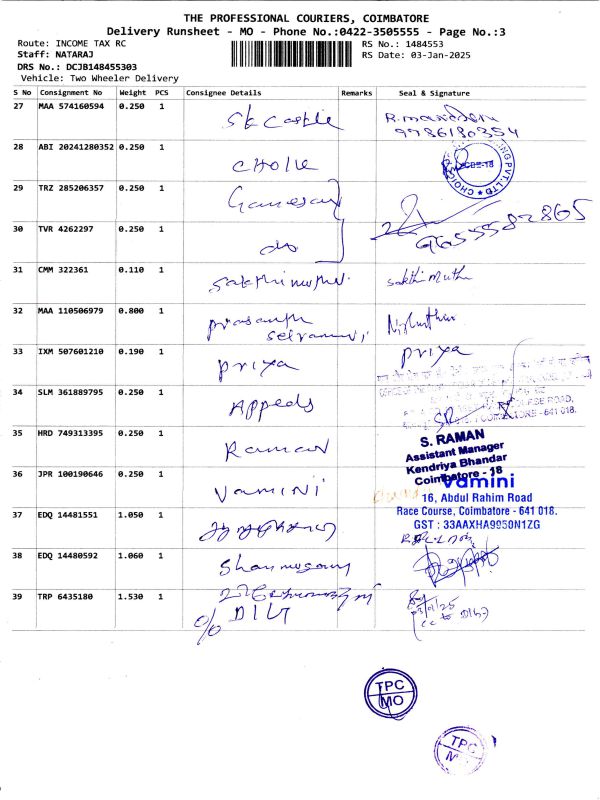 THE PROFESSIONAL COURIERS, COIMBATORE
Delivery Runsheet - MO - Phone No.:0422-3505555 - Page No.:3
Route: INCOME TAX RC
RS No.: 1484553
Staff: NATARAJ
RS Date: 03-Jan-2025
DRS No.: DCJB148455303
Vehicle: Two Wheeler Delivery
S No Consignment No Weight PCS Consignee Details Remarks Seal & Signature
27 MAA 574160594 0.250 1 Sk Castle
9986180354
28 ABI 20241280352 0.250 1 CHOLE
29 TRZ 285206357 0.250 1 Ganesan
30 TVR 4262297 0.250 1 do
9655582865
31 CMM 322361 0.110 1 Sakthimuthu Sakthi Muthu
32 MAA 110506979 0.800 1 Prasanth
Selvamani
33 IXM 507601210 0.190 1 Priya Priya
34 SLM 361889795 0.250 1 Appeals
COIMBATORE - 641 018.
35 HRD 749313395 0.250 1 Raman
S. RAMAN
Assistant Manager
Kendriya Bhandar
Coimbatore - 18
36 JPR 100190646 0.250 1 VAMINI
Vamini
16, Abdul Rahim Road
Race Course, Coimbatore - 641 018.
GST : 33AAXHA9950N1ZG
37 EDQ 14481551 1.050 1
38 EDQ 14480592 1.060 1 Shanmugam
39 TRP 6435180 1.530 1
% DIG
03/01/25
TPC
MO
TPC